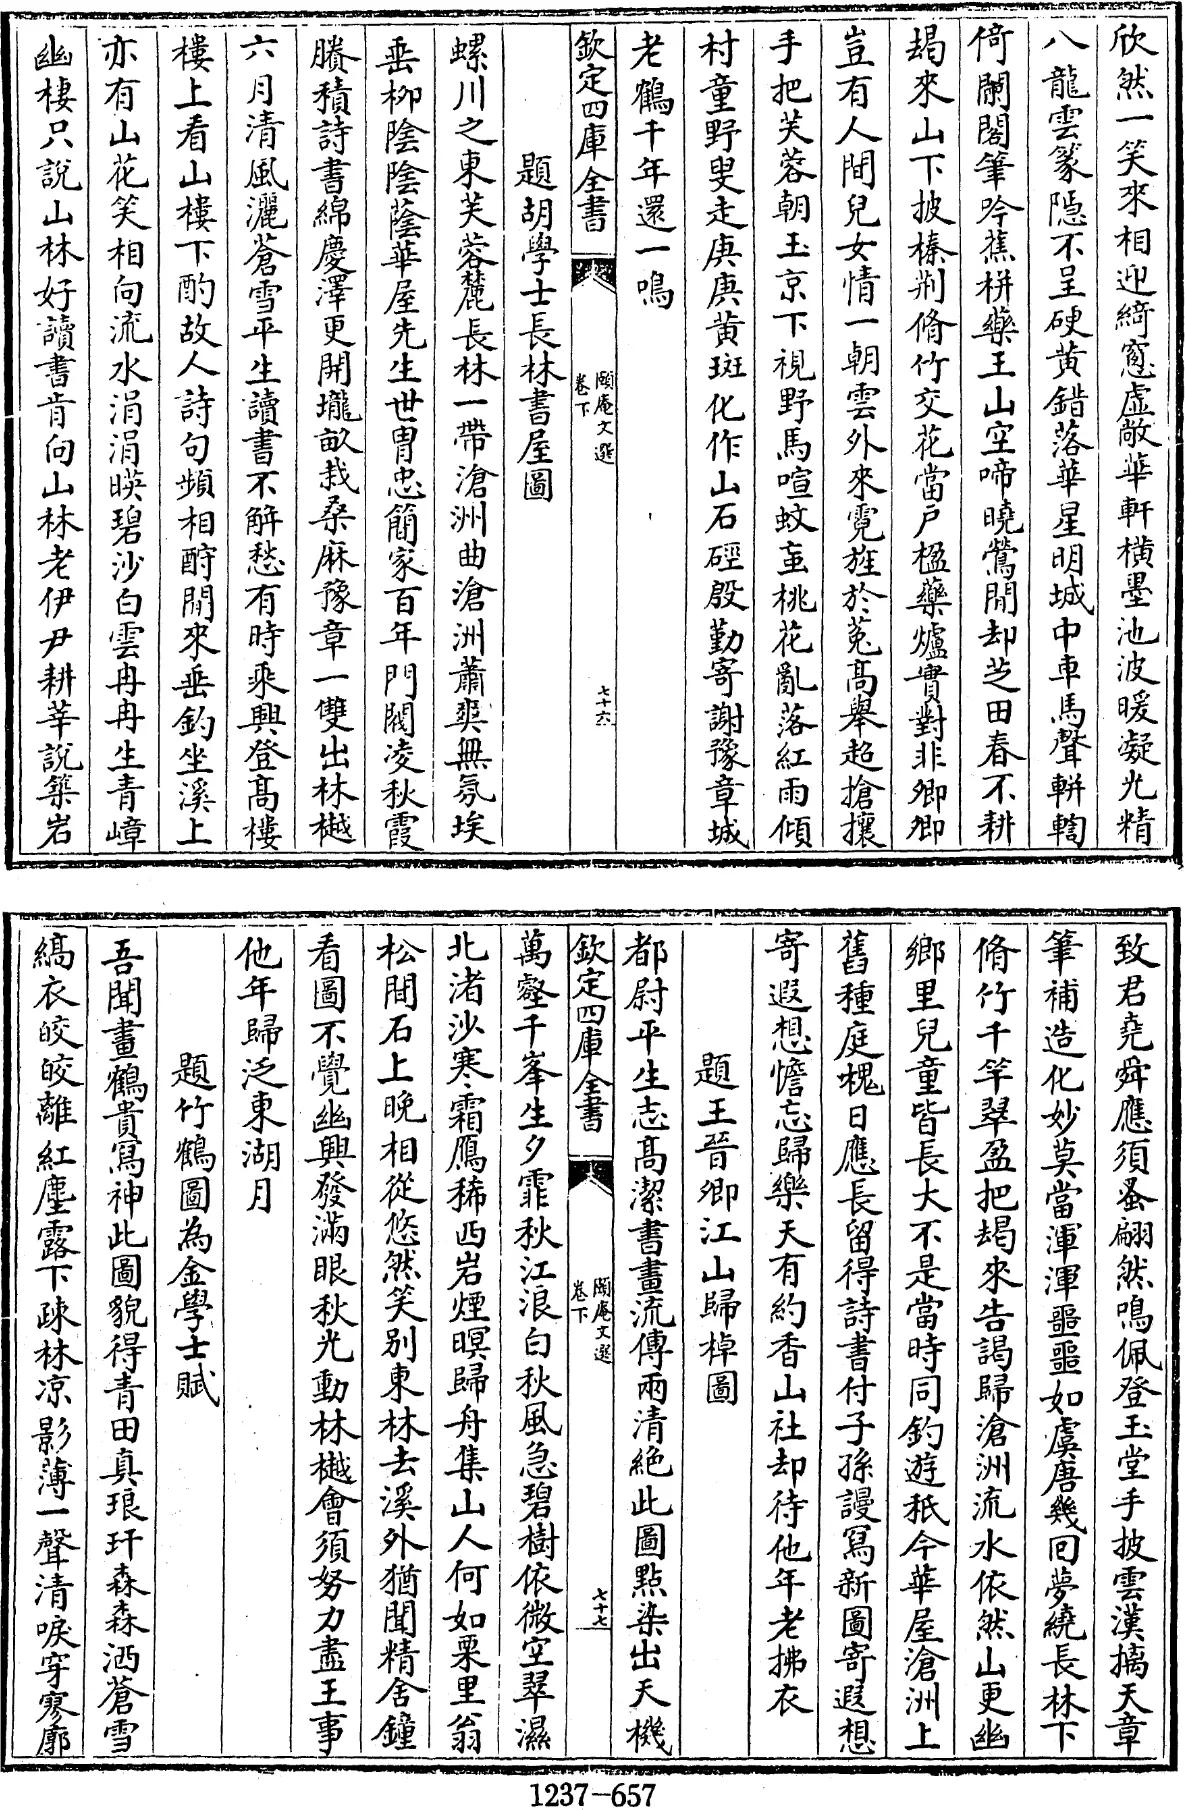 欣然一笑來相迎綺窓虛敞華軒橫墨池波暖凝光精
八龍雲篆隠不呈硬黃錯落華星明城中車馬聲輧輷
倚闌閣筆吟蕉栟藥王山空啼曉鶯閒却芝田春不耕
朅來山下披榛荆脩竹交花當戶楹藥爐實對非卿卿
豈有人間兒女情一朝雲外來霓旌於菟高舉超搶攘
手把芙蓉朝玉京下視野馬喧蚊䖟桃花亂落紅雨傾
村童野叟走庚庚黃斑化作山石硜殷勤寄謝豫章城
老鶴千年還一鳴
欽定四庫全書
頤庵文選
卷下
七十六
題胡學士長林書屋圖
螺川之東芙蓉麓長林一帶滄洲曲滄洲蕭爽無氛埃
垂柳陰陰蔭華屋先生世胄忠簡家百年門閥凌秋霞
賸積詩書綿慶澤更開壠畝栽桑麻豫章一雙出林樾
六月清風灑蒼雪平生讀書不解愁有時乘興登高樓
樓上看山樓下酌故人詩句頻相酧閒來垂釣坐溪上
亦有山花笑相向流水涓涓暎碧沙白雲冉冉生青嶂
幽棲只說山林好讀書肯向山林老伊尹耕莘說築岩
致君堯舜應須蚤翩然鳴佩登玉堂手披雲漢摛天章
筆補造化妙莫當渾渾噩噩如虞唐幾回夢繞長林下
脩竹千竿翠盈把朅來告謁歸滄洲流水依然山更幽
鄉里兒童皆長大不是當時同釣遊秪今華屋滄洲上
舊種庭槐日應長留得詩書付子孫謾寫新圖寄遐想
寄遐想憺忘歸樂天有約香山社却待他年老拂衣
題王晉卿江山歸棹圖
都尉平生志高潔書畫流傳兩清絶此圖點染出天機
欽定四庫全書
頤庵文選
卷下
七十七
萬壑千峯生夕霏秋江浪白秋風急碧樹依微空翠濕
北渚沙寒霜鴈稀西岩煙暝歸舟集山人何如栗里翁
松間石上晚相從悠然笑別東林去溪外猶聞精舍鐘
看圖不覺幽興發滿眼秋光動林樾會須努力盡王事
他年歸泛東湖月
題竹鶴圖為金學士賦
吾聞畫鶴貴寫神此圖貌得青田真琅玕森森洒蒼雪
縞衣皎皎離紅塵露下疎林凉影薄一聲清唳穿寥廓
1237—657